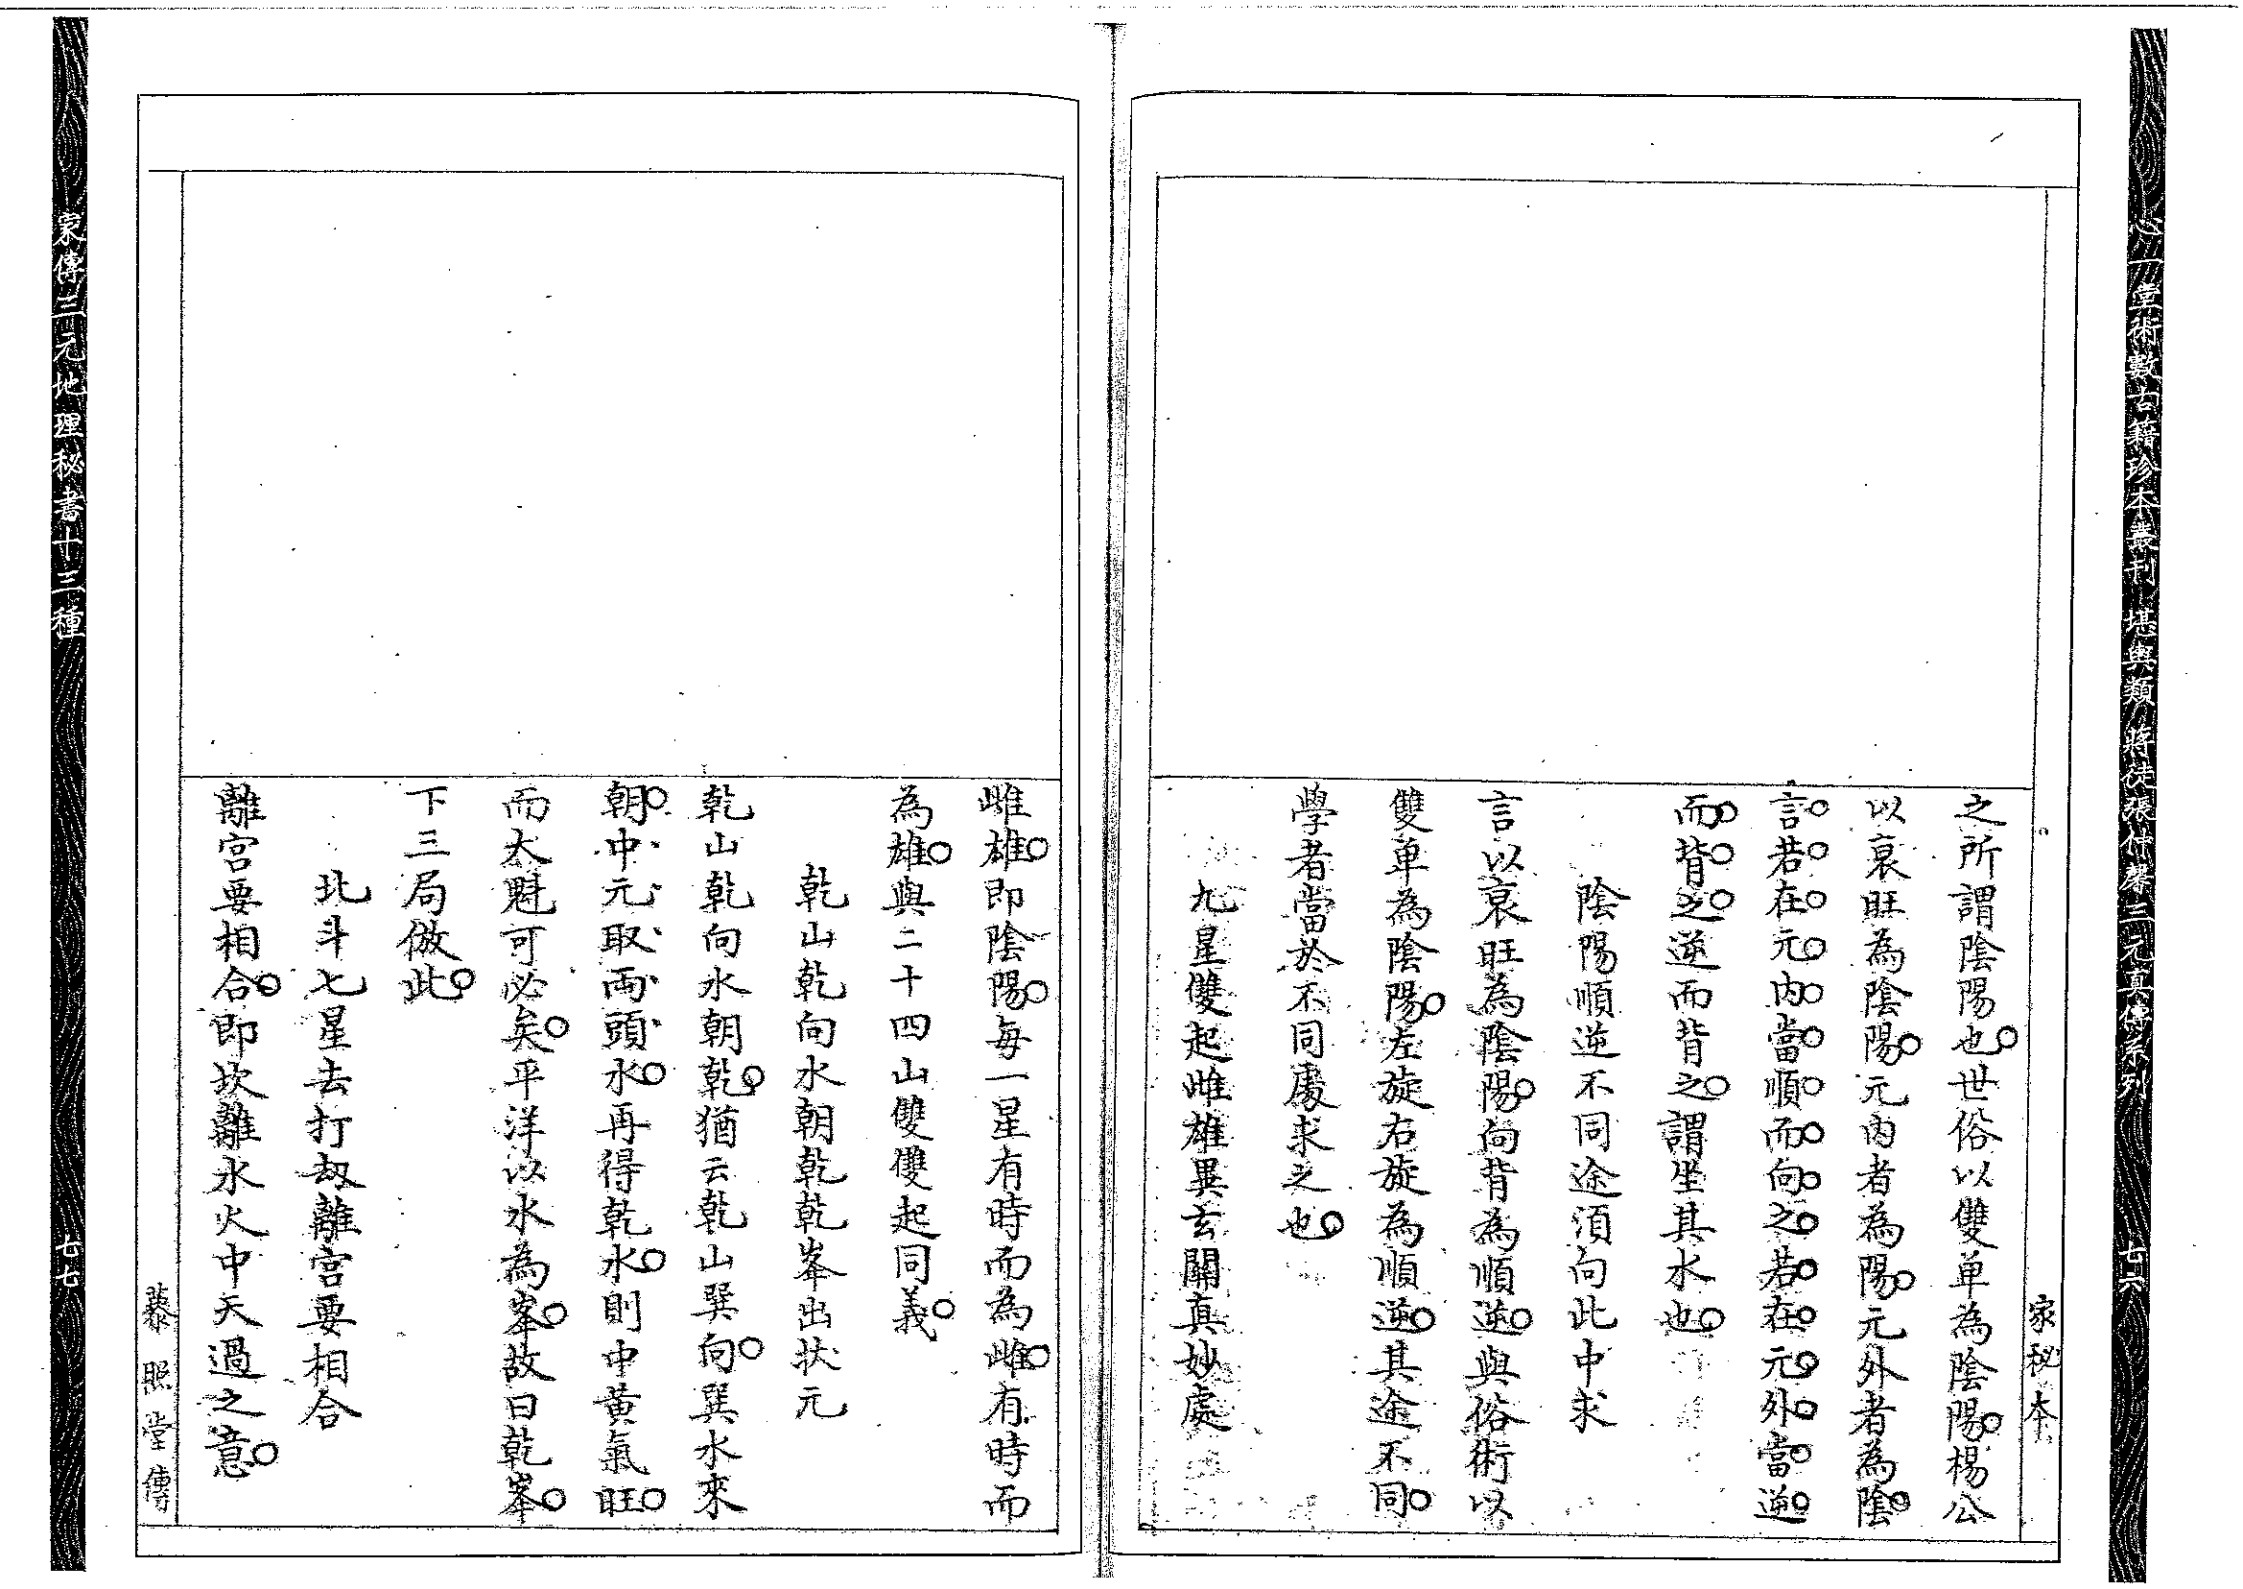 心一堂術數古籍珍本叢刊 堪輿類 蔣徒張仲馨三元真傳系列
七六
家秘本
之所謂陰陽也○世俗以雙单為陰陽○楊公
以衰旺為陰陽○元內者為陽○元外者為陰○
言○若○在○元○內○當○順○而○向○之○若○在○元○外○當○逆○
而○背○之○逆而背之○謂坐其水也○
陰陽順逆不同途須向此中求
言以衰旺為陰陽○向背為順逆○與俗術以
雙单為陰陽○左旋右旋為順逆○其途不同○
學者當於不同處求之也○
九星雙起雌雄異玄關真妙處
雌雄○即陰陽○每一星有時而為雌○有時而
為雄○與二十四山雙雙起同義○
乾山乾向水朝乾乾峯出状元
乾山乾向水朝乾○猶云乾山巽向○巽水來
朝○中元取両頭水○再得乾水○則中黃氣旺○
而大魁可必矣○平洋以水為峯○故曰乾峯○
下三局倣此○
北斗七星去打刼離宮要相合
離宮要相合○即坎離水火中天過之意○
藜照堂傳
家傳三元地理秘書十三種
七七